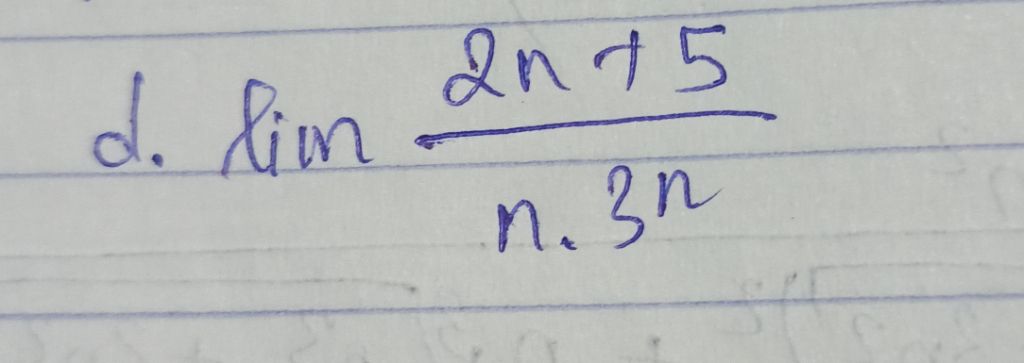 d. lim \frac{2n+5}{n.3^n}